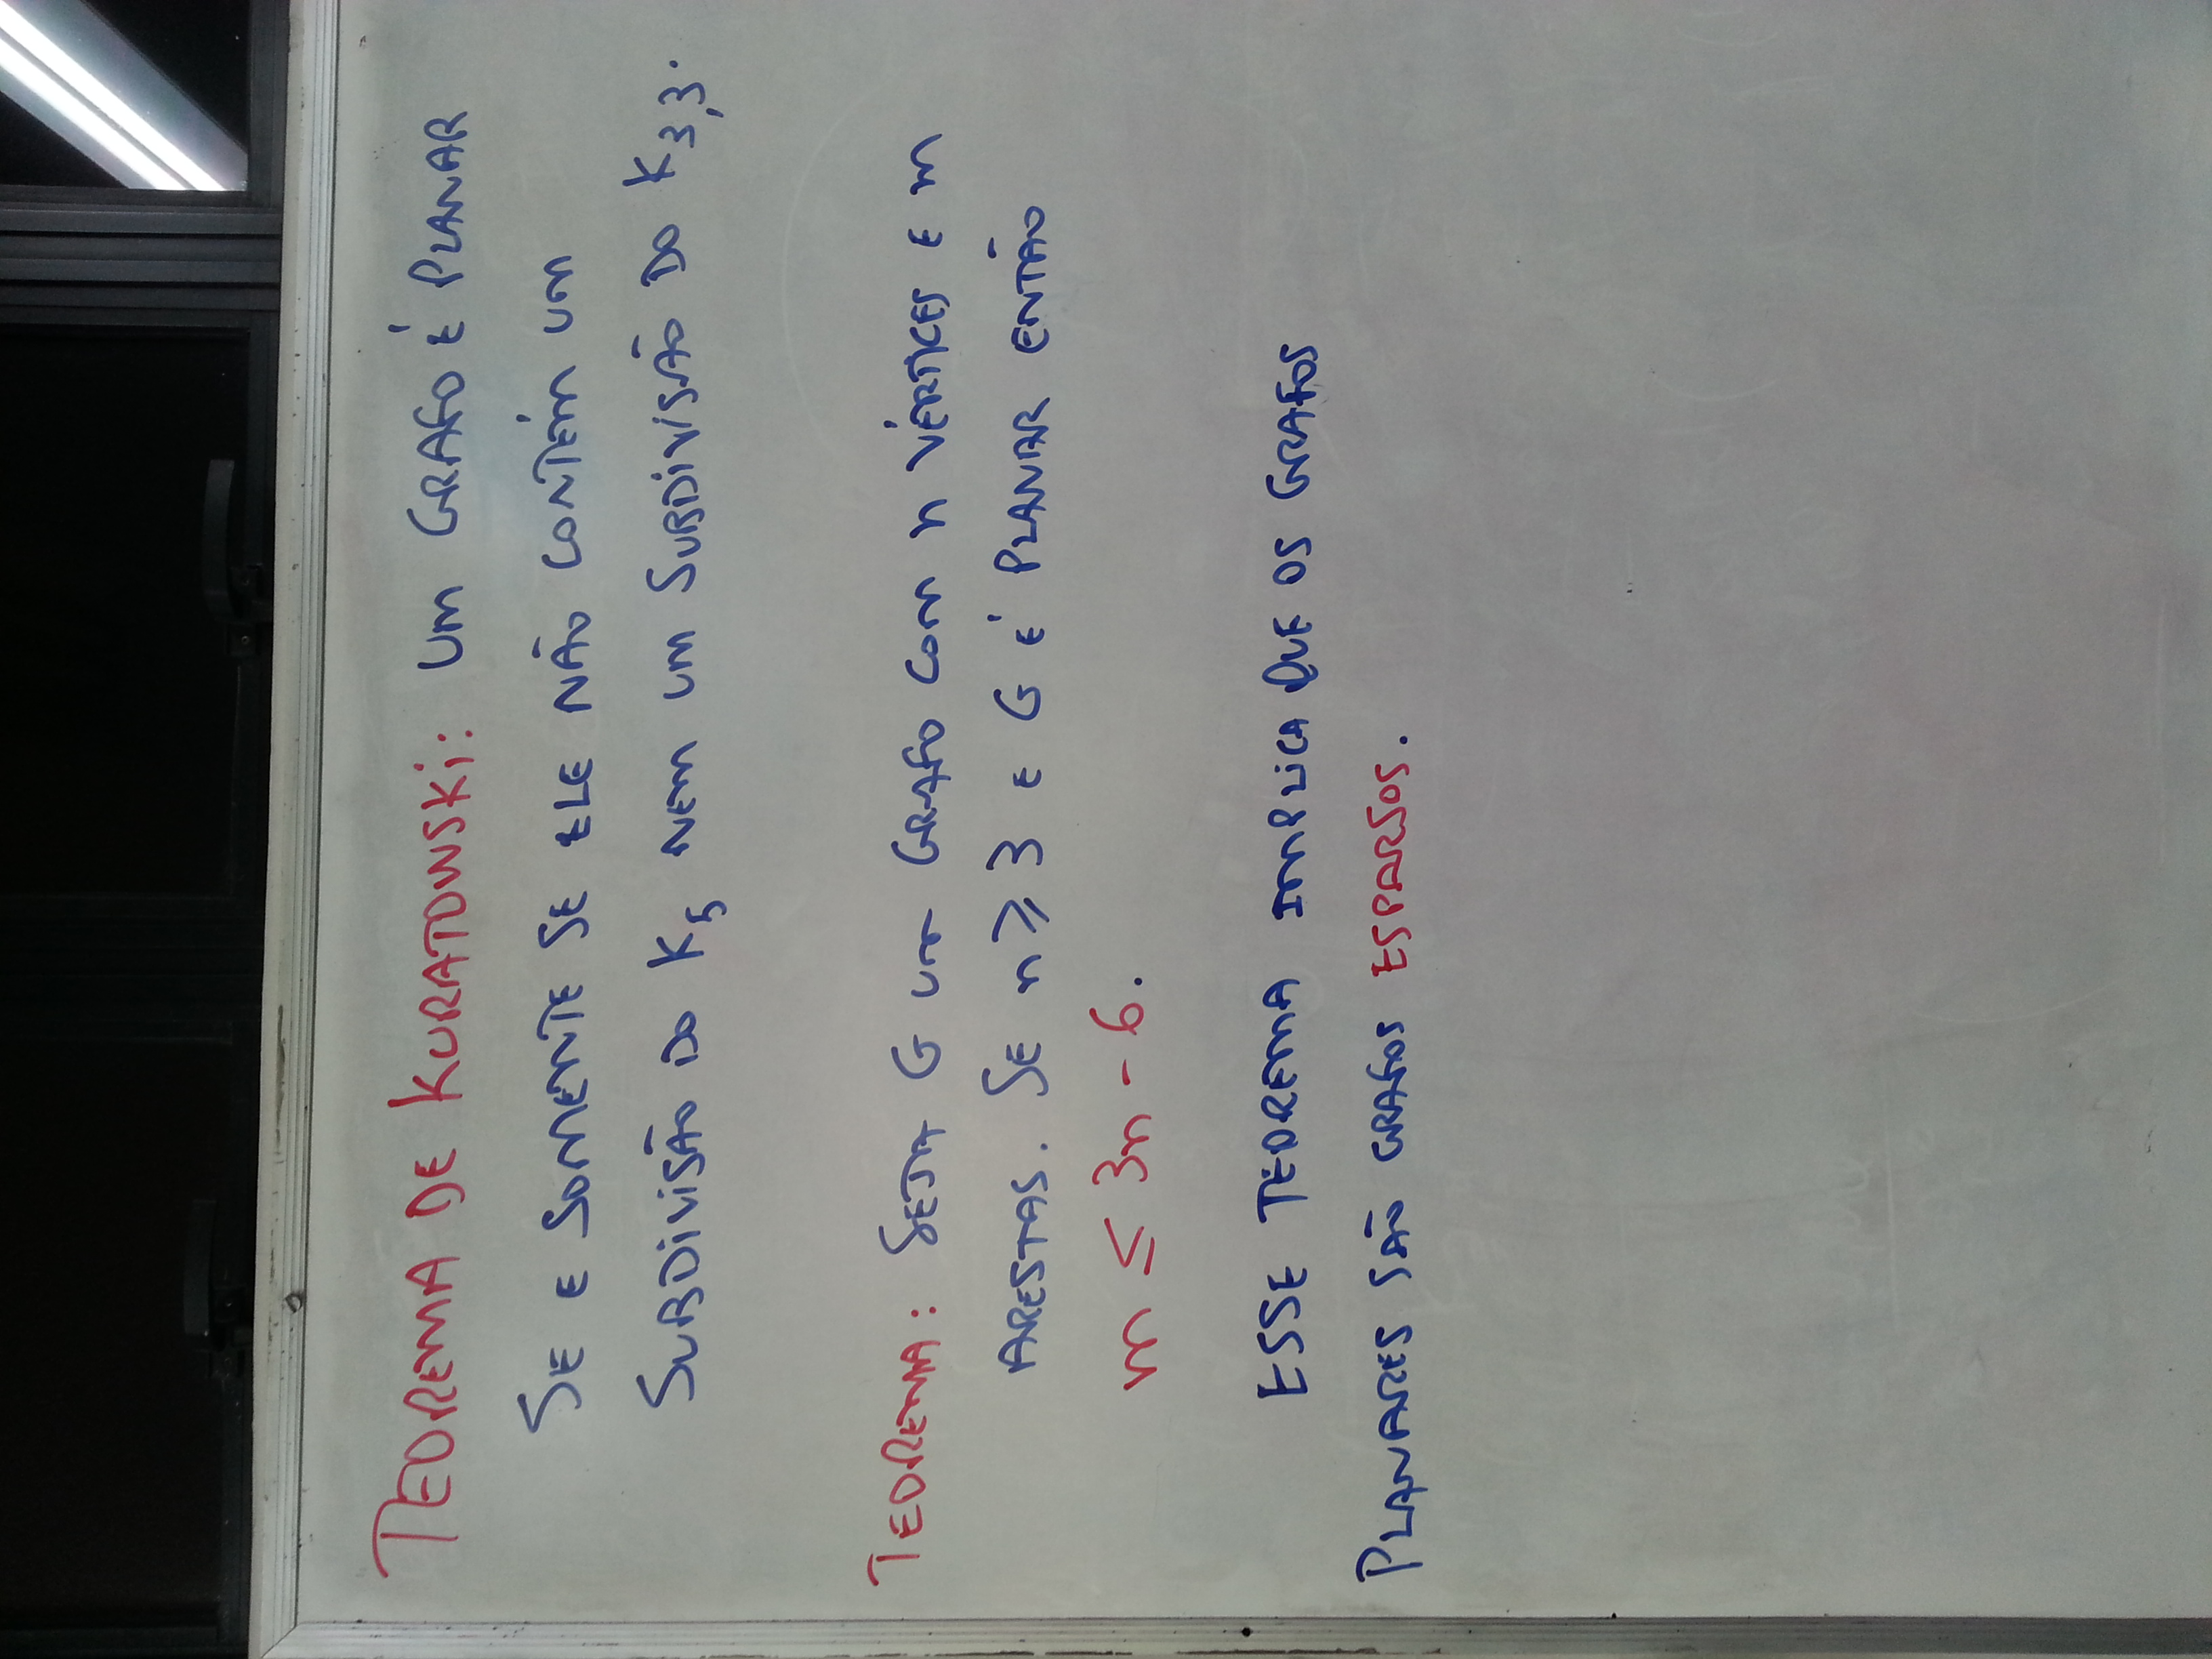 TEOREMA DE KURATOWSKi: UM GRAFO É PLANAR
SE E SOMENTE SE ELE NÃO CONTÉM UM
SUBDiViSÃO DO K₅ NEM UM SUBDiViSÃO DO K₃,₃.
TEOREMA: SEJA G UM GRAFO COM n VÉRTICES E m
ARESTAS. SE n ≥ 3 E G É PLANAR ENTÃO
m ≤ 3n - 6.
ESSE TEOREMA IMPLiCA QUE OS GRAFOS
PLANARES SÃO GRAFOS ESPARSOS.